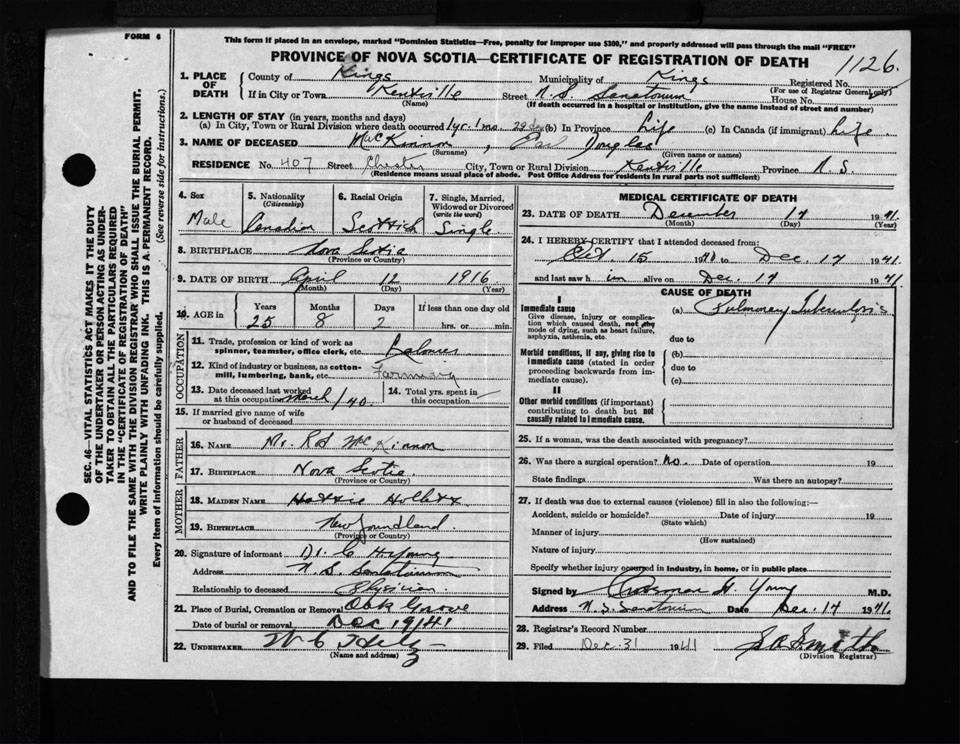 FORM 6
This form if placed in an envelope, marked "Dominion Statistics—Free, penalty for improper use $300," and properly addressed will pass through the mail "FREE"
PROVINCE OF NOVA SCOTIA—CERTIFICATE OF REGISTRATION OF DEATH
1126
1. PLACE OF DEATH County of Kings Municipality of Kings Registered No.
(For use of Registrar General only)
If in City or Town Kentville Street N.S. Sanatorium House No.
(Name) (If death occurred in a hospital or institution, give the name instead of street and number)
2. LENGTH OF STAY (in years, months and days)
(a) In City, Town or Rural Division where death occurred 1 yr. 1 mo. 29 days (b) In Province Life (c) In Canada (if immigrant) Life
3. NAME OF DECEASED MacKinnon, Earl Douglas
(Surname) (Given name or names)
RESIDENCE No. 407 Street Chester City, Town or Rural Division Kentville Province N.S.
(Residence means usual place of abode. Post Office Address for residents in rural parts not sufficient)
4. Sex Male
5. Nationality (Citizenship) Canadian
6. Racial Origin Scottish
7. Single, Married, Widowed or Divorced (write the word) Single
8. BIRTHPLACE Nova Scotia
(Province or Country)
9. DATE OF BIRTH April 12 1916
(Month) (Day) (Year)
10. AGE in Years Months Days If less than one day old
25 8 2 hrs. or min.
OCCUPATION
11. Trade, profession or kind of work as spinner, teamster, office clerk, etc. Labourer
12. Kind of industry or business, as cotton-mill, lumbering, bank, etc. Farming
13. Date deceased last worked at this occupation March/40
14. Total yrs. spent in this occupation
15. If married give name of wife or husband of deceased
FATHER
16. NAME Mr. Rod McKinnon
17. BIRTHPLACE Nova Scotia
(Province or Country)
MOTHER
18. MAIDEN NAME Hattie
19. BIRTHPLACE Newfoundland
(Province or Country)
20. Signature of informant Dr. C. H. Young
Address N.S. Sanatorium
Relationship to deceased Physician
21. Place of Burial, Cremation or Removal Oak Grove
Date of burial or removal Dec 19/41
22. UNDERTAKER W C
(Name and address)
MEDICAL CERTIFICATE OF DEATH
23. DATE OF DEATH December 14 1941
(Month) (Day) (Year)
24. I HEREBY CERTIFY that I attended deceased from:
Oct 15 1940 to Dec. 14 1941
and last saw him alive on Dec. 14 1941
CAUSE OF DEATH
I
Immediate cause
Give disease, injury or complication which caused death, not the mode of dying, such as heart failure, asphyxia, asthenia, etc.
(a) Pulmonary Tuberculosis
due to
Morbid conditions, if any, giving rise to immediate cause (stated in order proceeding backwards from immediate cause).
(b)
due to
(c)
II
Other morbid conditions (if important) contributing to death but not causally related to immediate cause.
25. If a woman, was the death associated with pregnancy?
26. Was there a surgical operation? no. Date of operation 19
State findings Was there an autopsy?
27. If death was due to external causes (violence) fill in also the following:—
Accident, suicide or homicide? Date of injury 19
(State which)
Manner of injury
(How sustained)
Nature of injury
Specify whether injury occurred in industry, in home, or in public place
Signed by H. Young M.D.
Address N.S. Sanatorium Date Dec. 14 1941
28. Registrar's Record Number
29. Filed Dec. 31 1941 Smith
(Division Registrar)
SEC. 46—VITAL STATISTICS ACT MAKES IT THE DUTY
OF THE UNDERTAKER OR PERSON ACTING AS UNDER-
TAKER TO OBTAIN ALL THE PARTICULARS REQUIRED
IN THE "CERTIFICATE OF REGISTRATION OF DEATH"
AND TO FILE THE SAME WITH THE DIVISION REGISTRAR WHO SHALL ISSUE THE BURIAL PERMIT.
WRITE PLAINLY WITH UNFADING INK. THIS IS A PERMANENT RECORD.
Every item of information should be carefully supplied. (See reverse side for instructions.)